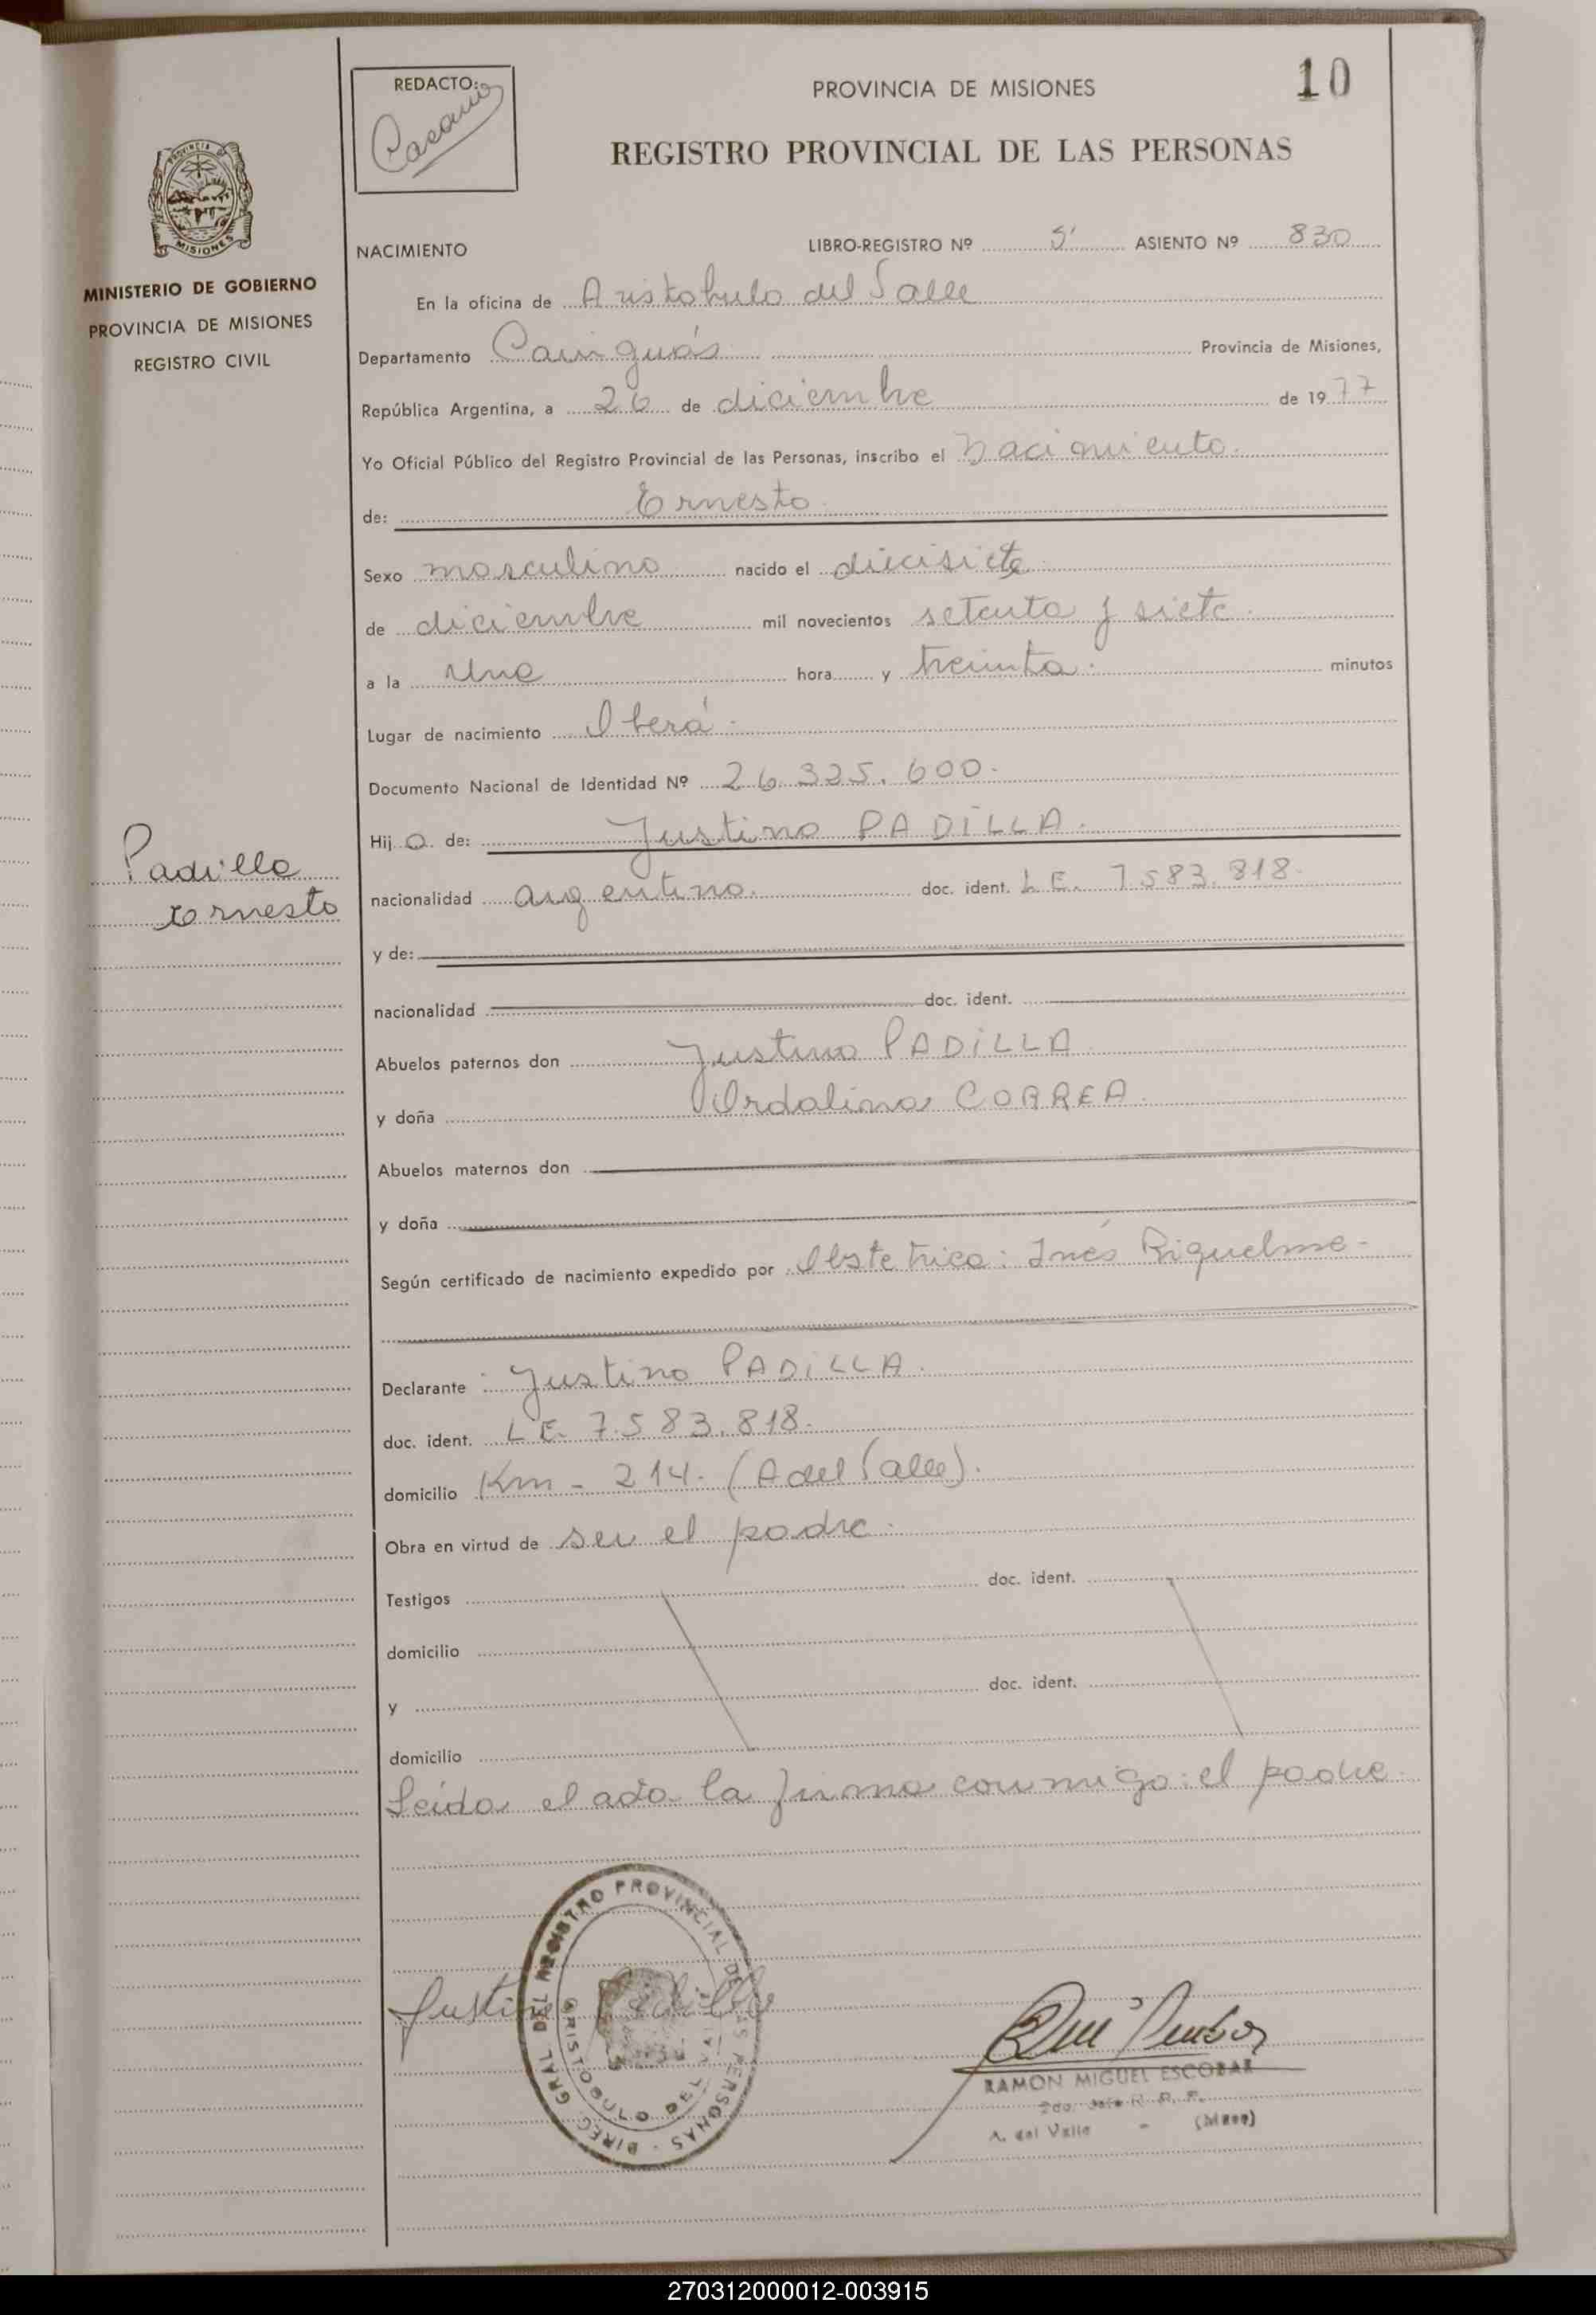 REDACTO:
PROVINCIA DE MISIONES
10
REGISTRO PROVINCIAL DE LAS PERSONAS
PROVINCIA
MISIONES
MINISTERIO DE GOBIERNO
PROVINCIA DE MISIONES
REGISTRO CIVIL
NACIMIENTO
LIBRO-REGISTRO Nº 5' ASIENTO Nº 830
En la oficina de Aristobulo del Valle
Departamento Cainguás Provincia de Misiones,
República Argentina, a 26 de diciembre de 1977
Yo Oficial Público del Registro Provincial de las Personas, inscribo el Nacimiento.
de: Ernesto.
Sexo masculino nacido el diecisiete
de diciembre mil novecientos setenta y siete.
a la una hora y treinta. minutos
Lugar de nacimiento Oberá.
Documento Nacional de Identidad Nº 26.325.600.
Hij o de: Justino PADiLLA.
Padilla
Ernesto
nacionalidad argentino. doc. ident. L E. 7.583.818.
y de:
nacionalidad doc. ident.
Abuelos paternos don Justino PADiLLA
y doña Ordalina CORREA.
Abuelos maternos don
y doña
Según certificado de nacimiento expedido por Obstetrica: Inés Riquelme-
Declarante Justino PADiLLA.
doc. ident. L E. 7.583.818.
domicilio Km - 214. (A del Valle).
Obra en virtud de ser el padre.
Testigos doc. ident.
domicilio
y doc. ident.
domicilio
Leida el acta la firma conmigo: el padre.
DIREC. GRAL DEL REGISTRO PROVINCIAL DE LAS PERSONAS
ARISTOBULO DEL VALLE
Justino Padilla
RAMON MIGUEL ESCOBAR
2do. Jefe R. P. P.
A. del Valle - (Mnes)
270312000012-003915